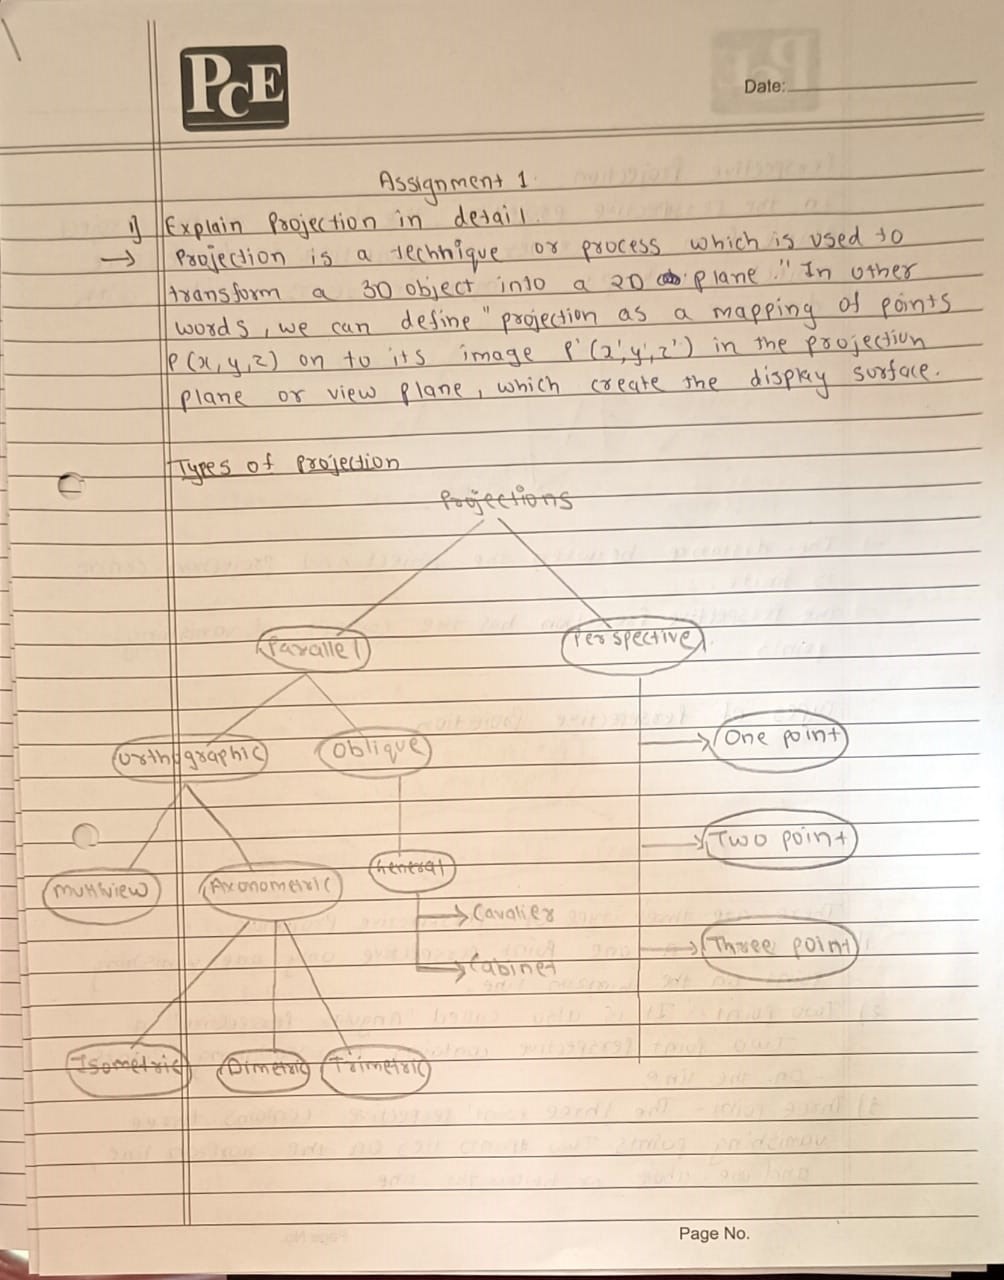 PCE
Date:
Assignment 1.
1) Explain Projection in detail.
→ Projection is a technique or process which is used to
transform a 3D object into a 2D plane." In other
words, we can define "projection as a mapping of points
P(x,y,z) on to its image P'(x',y',z') in the projection
plane or view plane, which create the display surface.
Types of Projection
Projections
Parallel
Perspective
Orthographic
Oblique
One point
Two point
Multiview
Axonometric
General
Cavalier
Cabinet
Three point
Isometric
Dimetric
Trimetric
Page No.